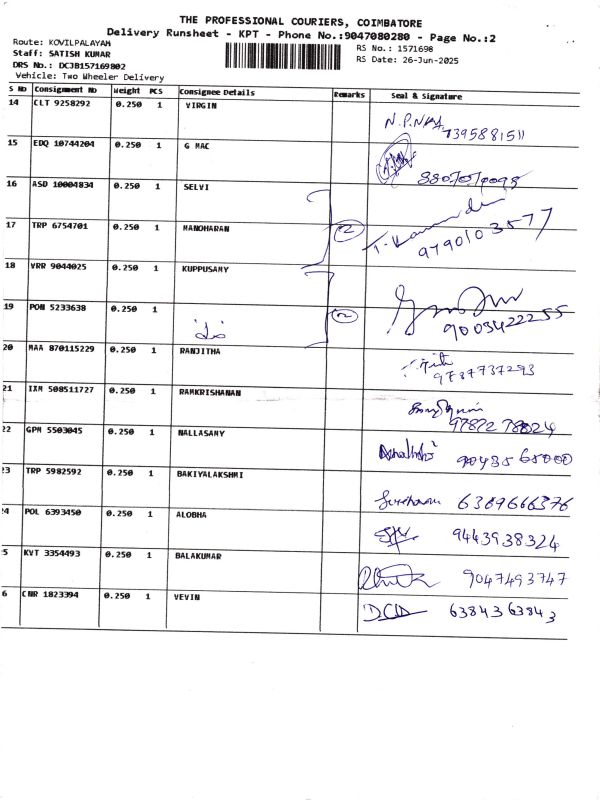 THE PROFESSIONAL COURIERS, COIMBATORE
Delivery Runsheet - KPT - Phone No.:9047080280 - Page No.:2
Route: KOVILPALAYAM
RS No.: 1571698
Staff: SATISH KUMAR
RS Date: 26-Jun-2025
DRS No.: DCJB157169802
Vehicle: Two Wheeler Delivery
S No Consignment No Weight PCS Consignee Details Remarks Seal & Signature
14 CLT 9258292 0.250 1 VIRGIN
7395881511
15 EDQ 10744204 0.250 1 G MAC
16 ASD 10004834 0.250 1 SELVI
17 TRP 6754701 0.250 1 MANOHARAN 2
9790103577
18 VRR 9044025 0.250 1 KUPPUSAMY
19 PON 5233638 0.250 1 2
9003422255
20 MAA 870115229 0.250 1 RANJITHA
9787737293
21 IXM 508511727 0.250 1 RAMKRISHANAN
22 GPM 5503045 0.250 1 NALLASAMY
23 TRP 5982592 0.250 1 BAKIYALAKSHMI
6369666376
24 POL 6393450 0.250 1 ALOBHA 9443938324
25 KVT 3354493 0.250 1 BALAKUMAR 9047493747
26 CNR 1823394 0.250 1 VEVIN 6384363843